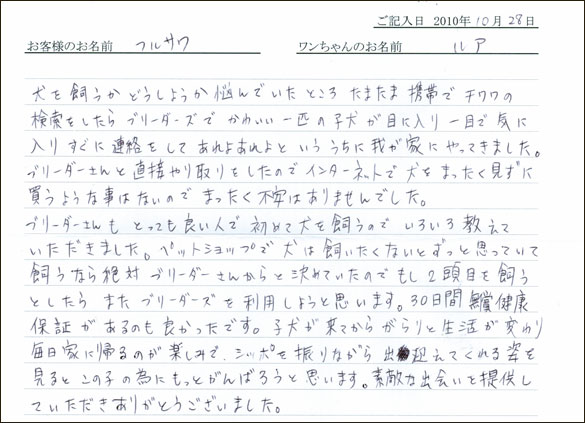 ご記入日 2010年10月28日
お客様のお名前 フルサワ ワンちゃんのお名前 ルア
犬を飼うかどうしようか悩んでいたところたまたま携帯でチワワの
検索をしたらブリーダーズでかわいい一匹の子犬が目に入り一目で気に
入りすぐに連絡をしてあれよあれよというううちに我が家にやってきました。
ブリーダーさんと直接やり取りをしたのでインターネットで犬をまったく見ずに
買うような事はないのでまったく不安はありませんでした。
ブリーダーさんもとっても良い人で初めて犬を飼うのでいろいろ教えて
いただきました。ペットショップで犬は飼いたくないとずっと思っていて
飼うなら絶対ブリーダーさんからと決めていたのでもし2頭目を飼う
としたらまたブリーダーズを利用しようと思います。30日間無償健康
保証があるのも良かったです。子犬が来てからがらりと生活が変わり
毎日家に帰るのが楽しみで、シッポを振りながら出迎えてくれる姿を
見るとこの子の為にもっとがんばろうと思います。素敵な出会いを提供し
ていただきありがとうございました。